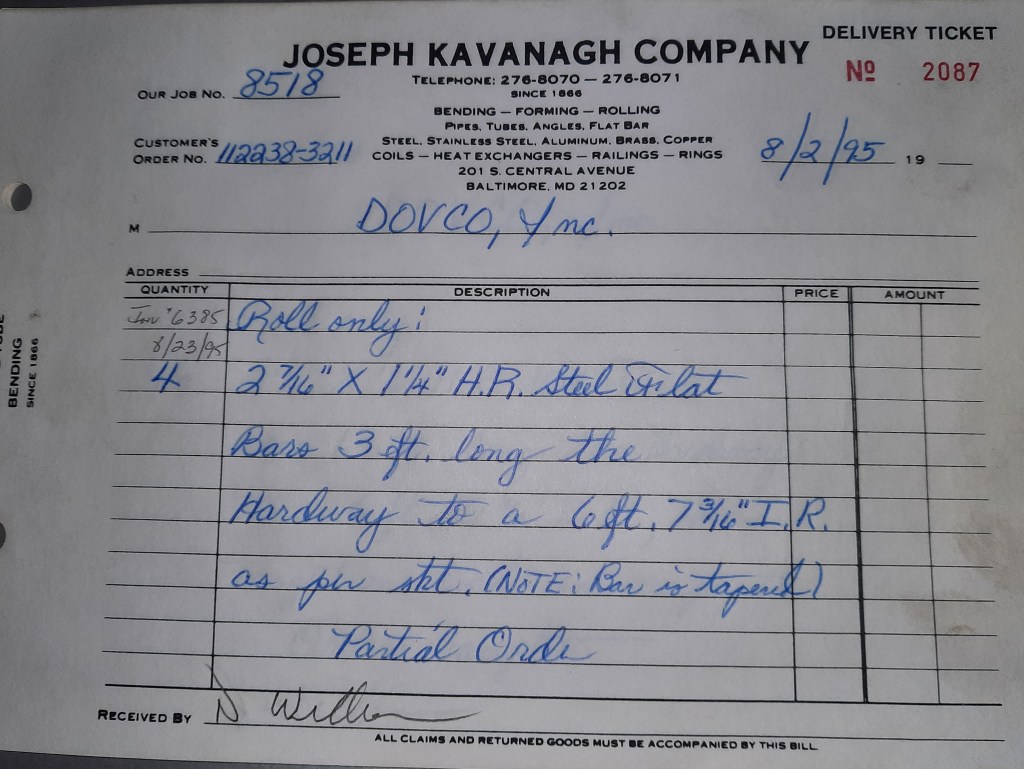 DELIVERY TICKET
JOSEPH KAVANAGH COMPANY
Nº 2087
TELEPHONE: 276-8070 — 276-8071
SINCE 1866
OUR JOB NO. 8518
BENDING — FORMING — ROLLING
PIPES, TUBES, ANGLES, FLAT BAR
CUSTOMER'S
ORDER NO. 112238-3211
STEEL, STAINLESS STEEL, ALUMINUM, BRASS, COPPER
COILS — HEAT EXCHANGERS — RAILINGS — RINGS
8/2/95 19
201 S. CENTRAL AVENUE
BALTIMORE, MD 21202
M DOVCO, Inc.
ADDRESS
QUANTITY DESCRIPTION PRICE AMOUNT
Inv # 6385 Roll only:
8/23/95
4 2 7/16" X 1 1/4" H.R. Steel Flat
Bars 3 ft. long the
Hardway to a 6 ft. 7 3/16" I.R.
as per skt. (NOTE: Bar is tapered)
Partial Order
RECEIVED BY N
ALL CLAIMS AND RETURNED GOODS MUST BE ACCOMPANIED BY THIS BILL
BENDING
SINCE 1866